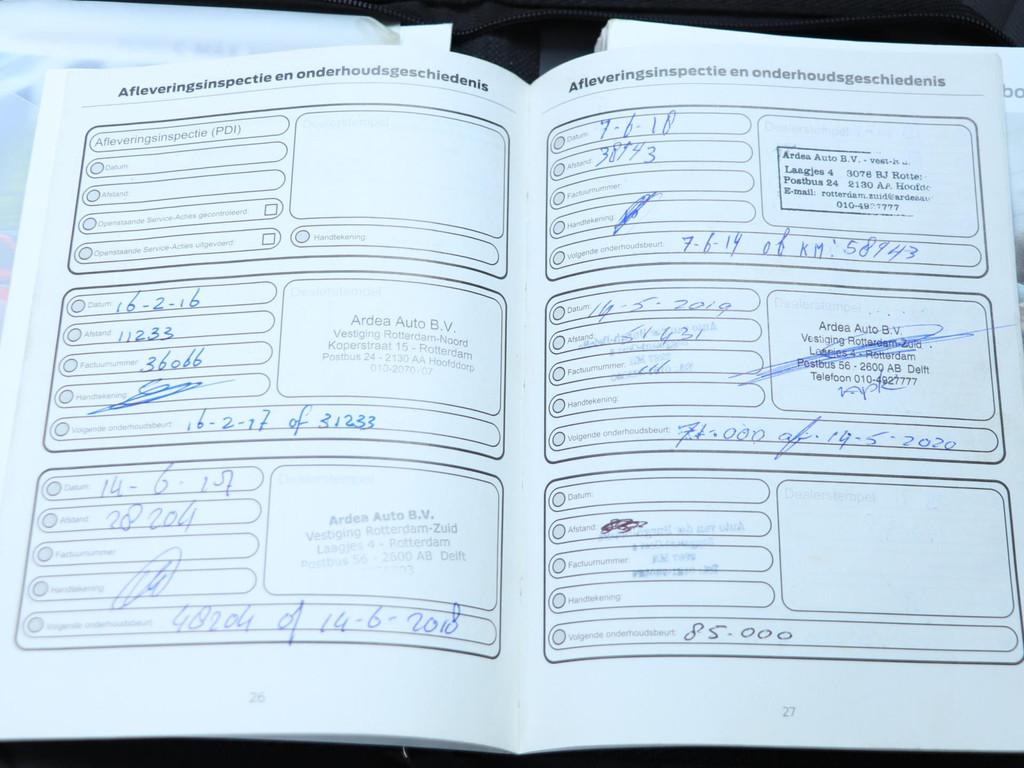 Afleveringsinspectie en onderhoudsgeschiedenis
Afleveringsinspectie (PDI)
Datum:
Afstand:
Openstaande Service-Acties gecontroleerd:
Openstaande Service-Acties uitgevoerd:
Dealerstempel
Handtekening:
Datum: 16-2-16
Afstand: 11233
Factuurnummer: 36066
Handtekening:
Volgende onderhoudsbeurt: 16-2-17 of 31233
Dealerstempel
Ardea Auto B.V.
Vestiging Rotterdam-Noord
Koperstraat 15 - Rotterdam
Postbus 24 - 2130 AA Hoofddorp
Datum: 14-6-17
Afstand: 28204
Factuurnummer:
Handtekening:
Volgende onderhoudsbeurt: 48204 of 14-6-2018
Dealerstempel
Ardea Auto B.V.
Vestiging Rotterdam-Zuid
Laagjes 4 - Rotterdam
Postbus 56 - 2600 AB Delft
26
Afleveringsinspectie en onderhoudsgeschiedenis
Datum: 7-6-18
Afstand: 38943
Factuurnummer:
Handtekening:
Volgende onderhoudsbeurt: 7-6-19 of KM: 58943
Dealerstempel
Ardea Auto B.V. -
Laagjes 4 3078 BJ
Postbus 24 2130 AA
E-mail:
Datum: 14-5-2019
Afstand:
Factuurnummer:
Handtekening:
Volgende onderhoudsbeurt: 71.000 of 14-5-2020
Dealerstempel
Ardea Auto B.V.
Vestiging Rotterdam-Zuid
Laagjes 4 - Rotterdam
Postbus 56 - 2600 AB Delft
Telefoon 010-4927777
Datum:
Afstand:
Factuurnummer:
Handtekening:
Volgende onderhoudsbeurt: 85.000
Dealerstempel
27